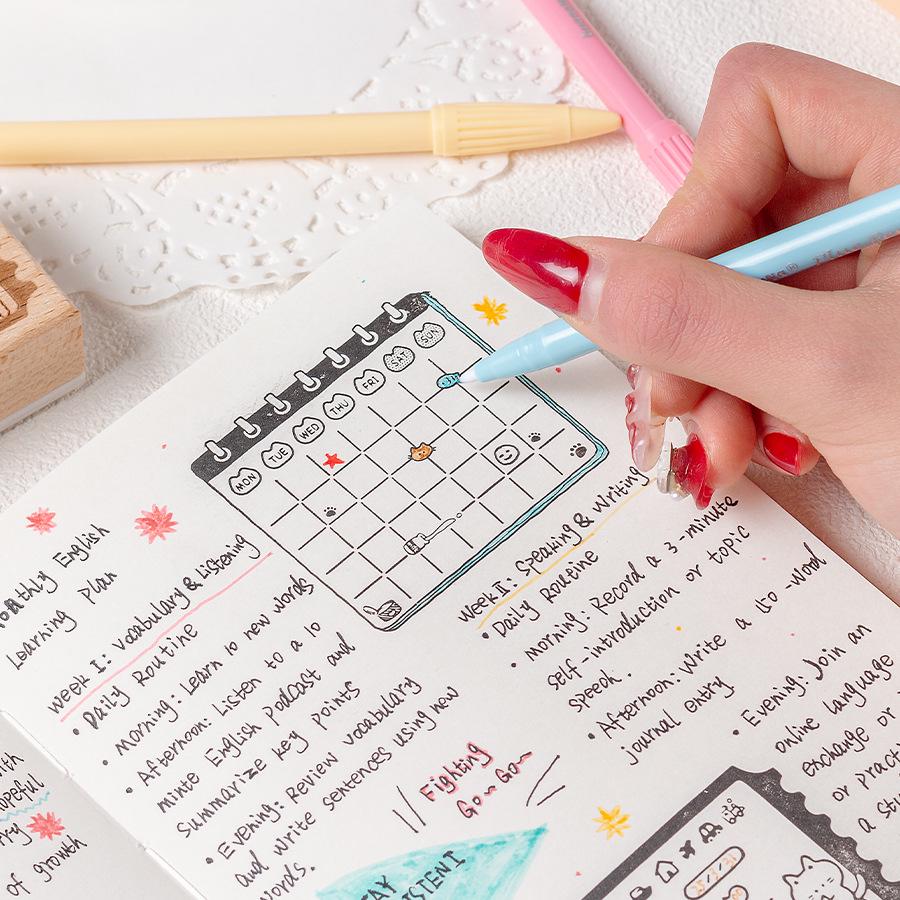 MON TUE WED THU FRI SAT SUN
Monthly English
Learning plan
Week I: Vocabulary & Listening
• Daily Routine
• Morning: Learn 10 new words
• Afternoon: Listen to a 10
minte English podcast and
summarize key points
• Evening: Review vocabulary
and write sentences using new
words.
Week II: Speaking & Writing
• Daily Routine
• Morning: Record a 3-minute
self-introduction or topic
speech.
• Afternoon: Write a 150-word
journal entry
• Evening: Join an
online language
exchange or
or practi
a st
Fighting
Go~ Go~
of growth